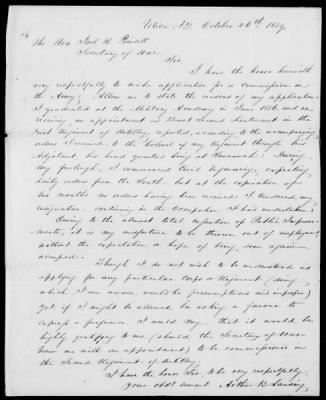 Utica N.Y. October 26th 1839.
The Hon Joel R. Poinsett
Secretary of War.
Sir
I have the honor herewith
very respectfully to make application for a commission in
the Army: Allow me to state the reasons of my application
I graduated at the Military Academy in June 1836, and on
receiving an appointment as Brevet Second Lieutenant in the
First Regiment of Artillery reported, according to the accompanying
orders I received, to the Colonel of my Regiment through his
Adjutant his head quarters being at Savannah: During
my furlough, I commenced Civil Engineering, expecting
daily orders from the South. but at the expiration of
two months no orders having been received I tendered my
resignation continuing in the Occupation I had undertaken:
Owing to the almost total cessation of Public Improve-
ments, it is my misfortune to be thrown out of employment
without the expectation or hope of being soon again
occupied.
Though I do not wish to be understood as
applying for any particular Corps or Regiment (doing
which, I am aware, would be presumptuous and improper)
yet, if I might be allowed in asking a favour to
express a preference, I would say that it would be
highly gratifying to me (should the Secretary of War
honor me with an appointment) to be commissioned in
the Second Regiment of Artillery.
I have the honor Sir, to be very respectfully
your obdt. servant. Arthur B. Lansing,